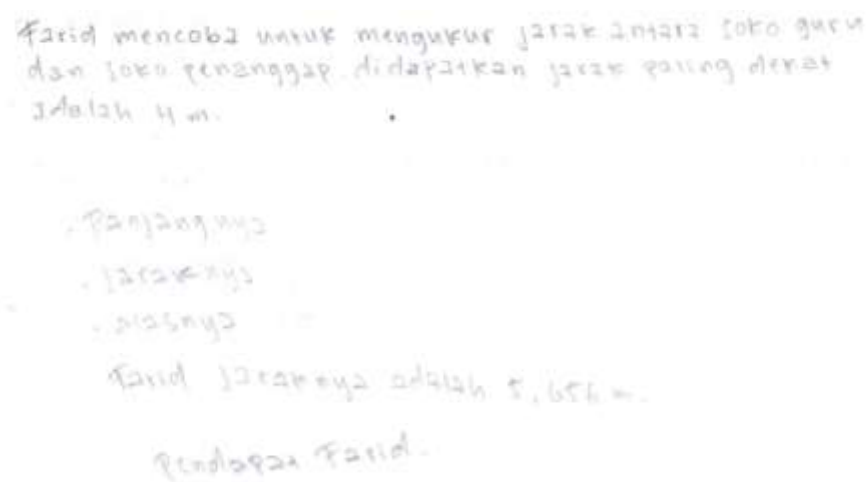 Farid mencoba untuk mengukur jarak antara soko guru
dan soko penanggap didapatkan jarak paling dekat
adalah 4 m.
. Panjangnya
. jaraknya
. alasnya
Farid jaraknya adalah 5,656 m.
Pendapat Farid.